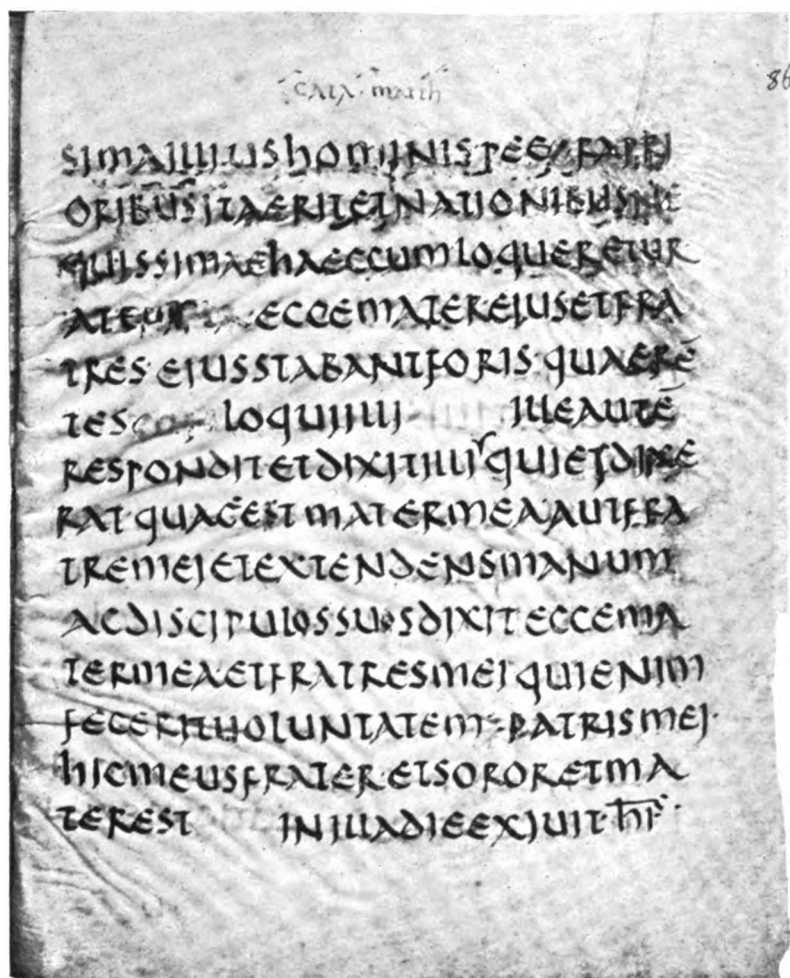 cata · matth
86
SIMAILLIUSHOMINISPEE RAPRI
ORIBUSITAERITETNATIONIBUSNE
QUISSIMAEHAECCUMLOQUERETUR
ECCEMATEREIUSETFRA
TRES·EIUSSTABANTFORIS·QUAERĒ
TES LOQUIILLI ILLEAUTĒ
RESPONDITETDIXITILLI QUIEIDIXE
RAT·QUAEESTMATERMEAAUTFRA
TREMEIETEXTENDENSMANUM
ACDISCIPULOSSUOSDIXITECCEMA
TERMEAETFRATRESMEIQUIENIM
FECERITUOLUNTATEM·PATRISMEI·
HICMEUSFRATERETSORORETMA
TEREST INILLADIEEXIUIT·